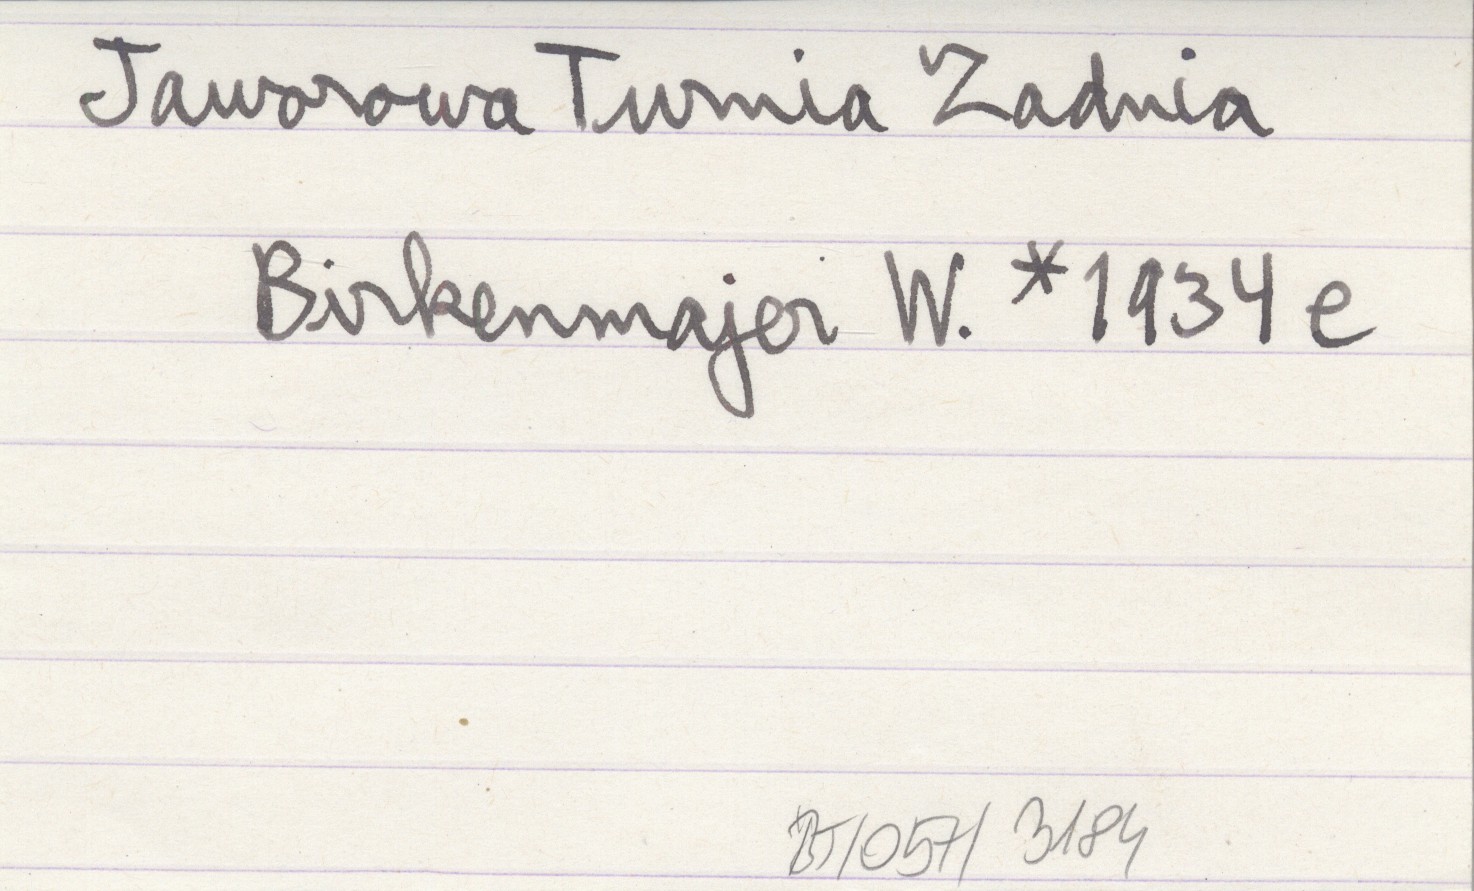 Jaworowa Turnia Zadnia
Birkenmajer W. *1934 e
BT/057/ 3184